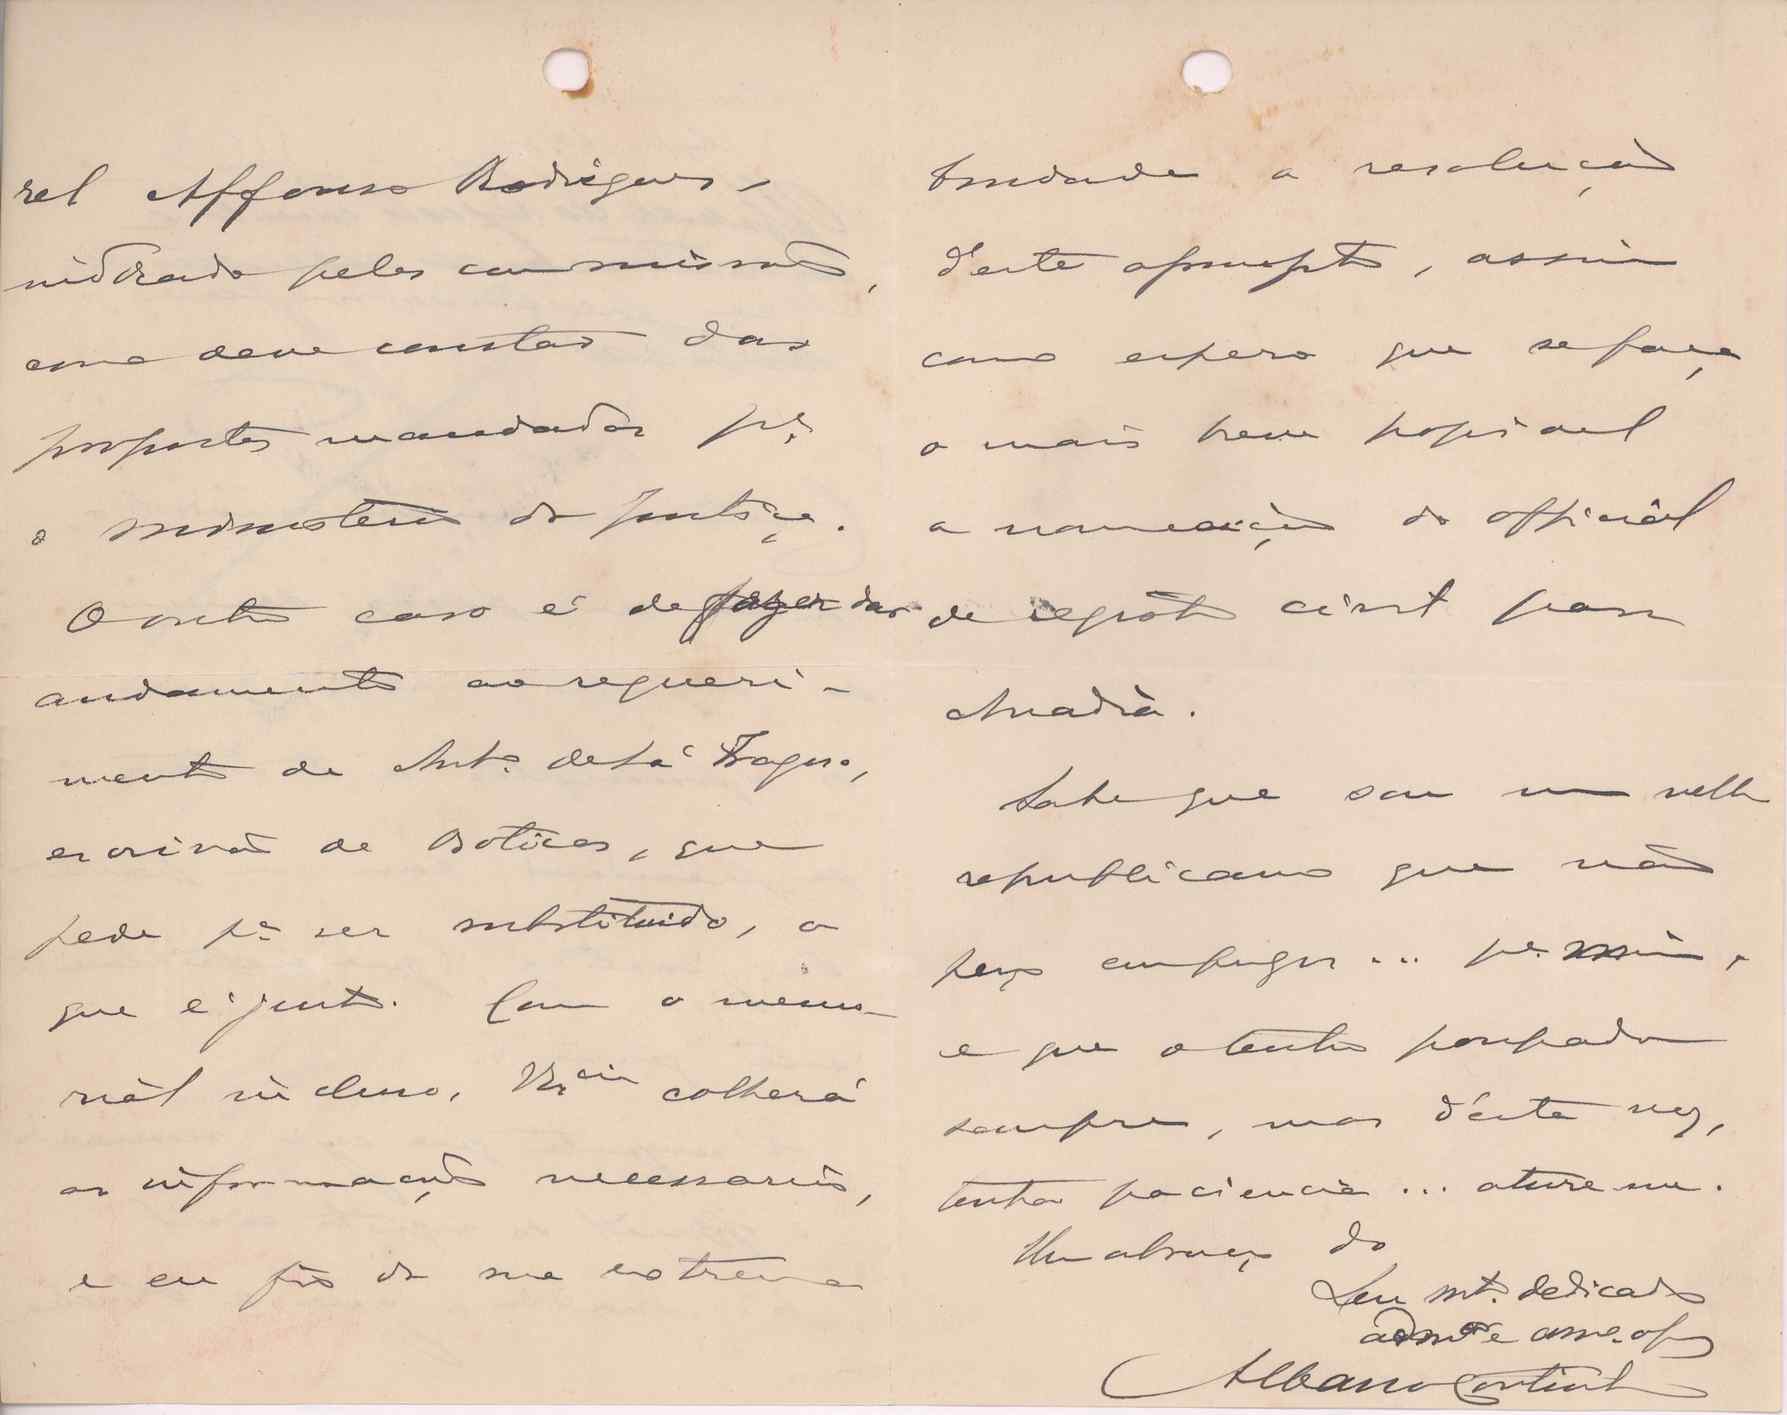 rel Affonso Rodrigues,
indicado pelas commissões,
como deve constar das
propostas mandadas pª
o ministerio da justiça.
O outro caso é de fazer dar
andamento ao requeri-
mento de Antº de Sá Fragoso,
escrivão de Boticas, que
pede pª ser substituido, o
que é justo. Com o memo-
rial incluso, V. Exciª colherá
as informações necessarias,
e eu fio da sua extrema
bondade a resolução
d'este assumpto, assim
como espero que se faça
o mais breve possivel
a nomeação do official
de registo civil para
Anadia.
Sabe que sou um velho
republicano que não
peço empregos... pª mim,
e que o tenho poupado
sempre, mas d'esta vez,
tenha paciencia... ature me.
Um abraço do
Seu mtº dedicado
admor e amº. obº
Albano Coutinho